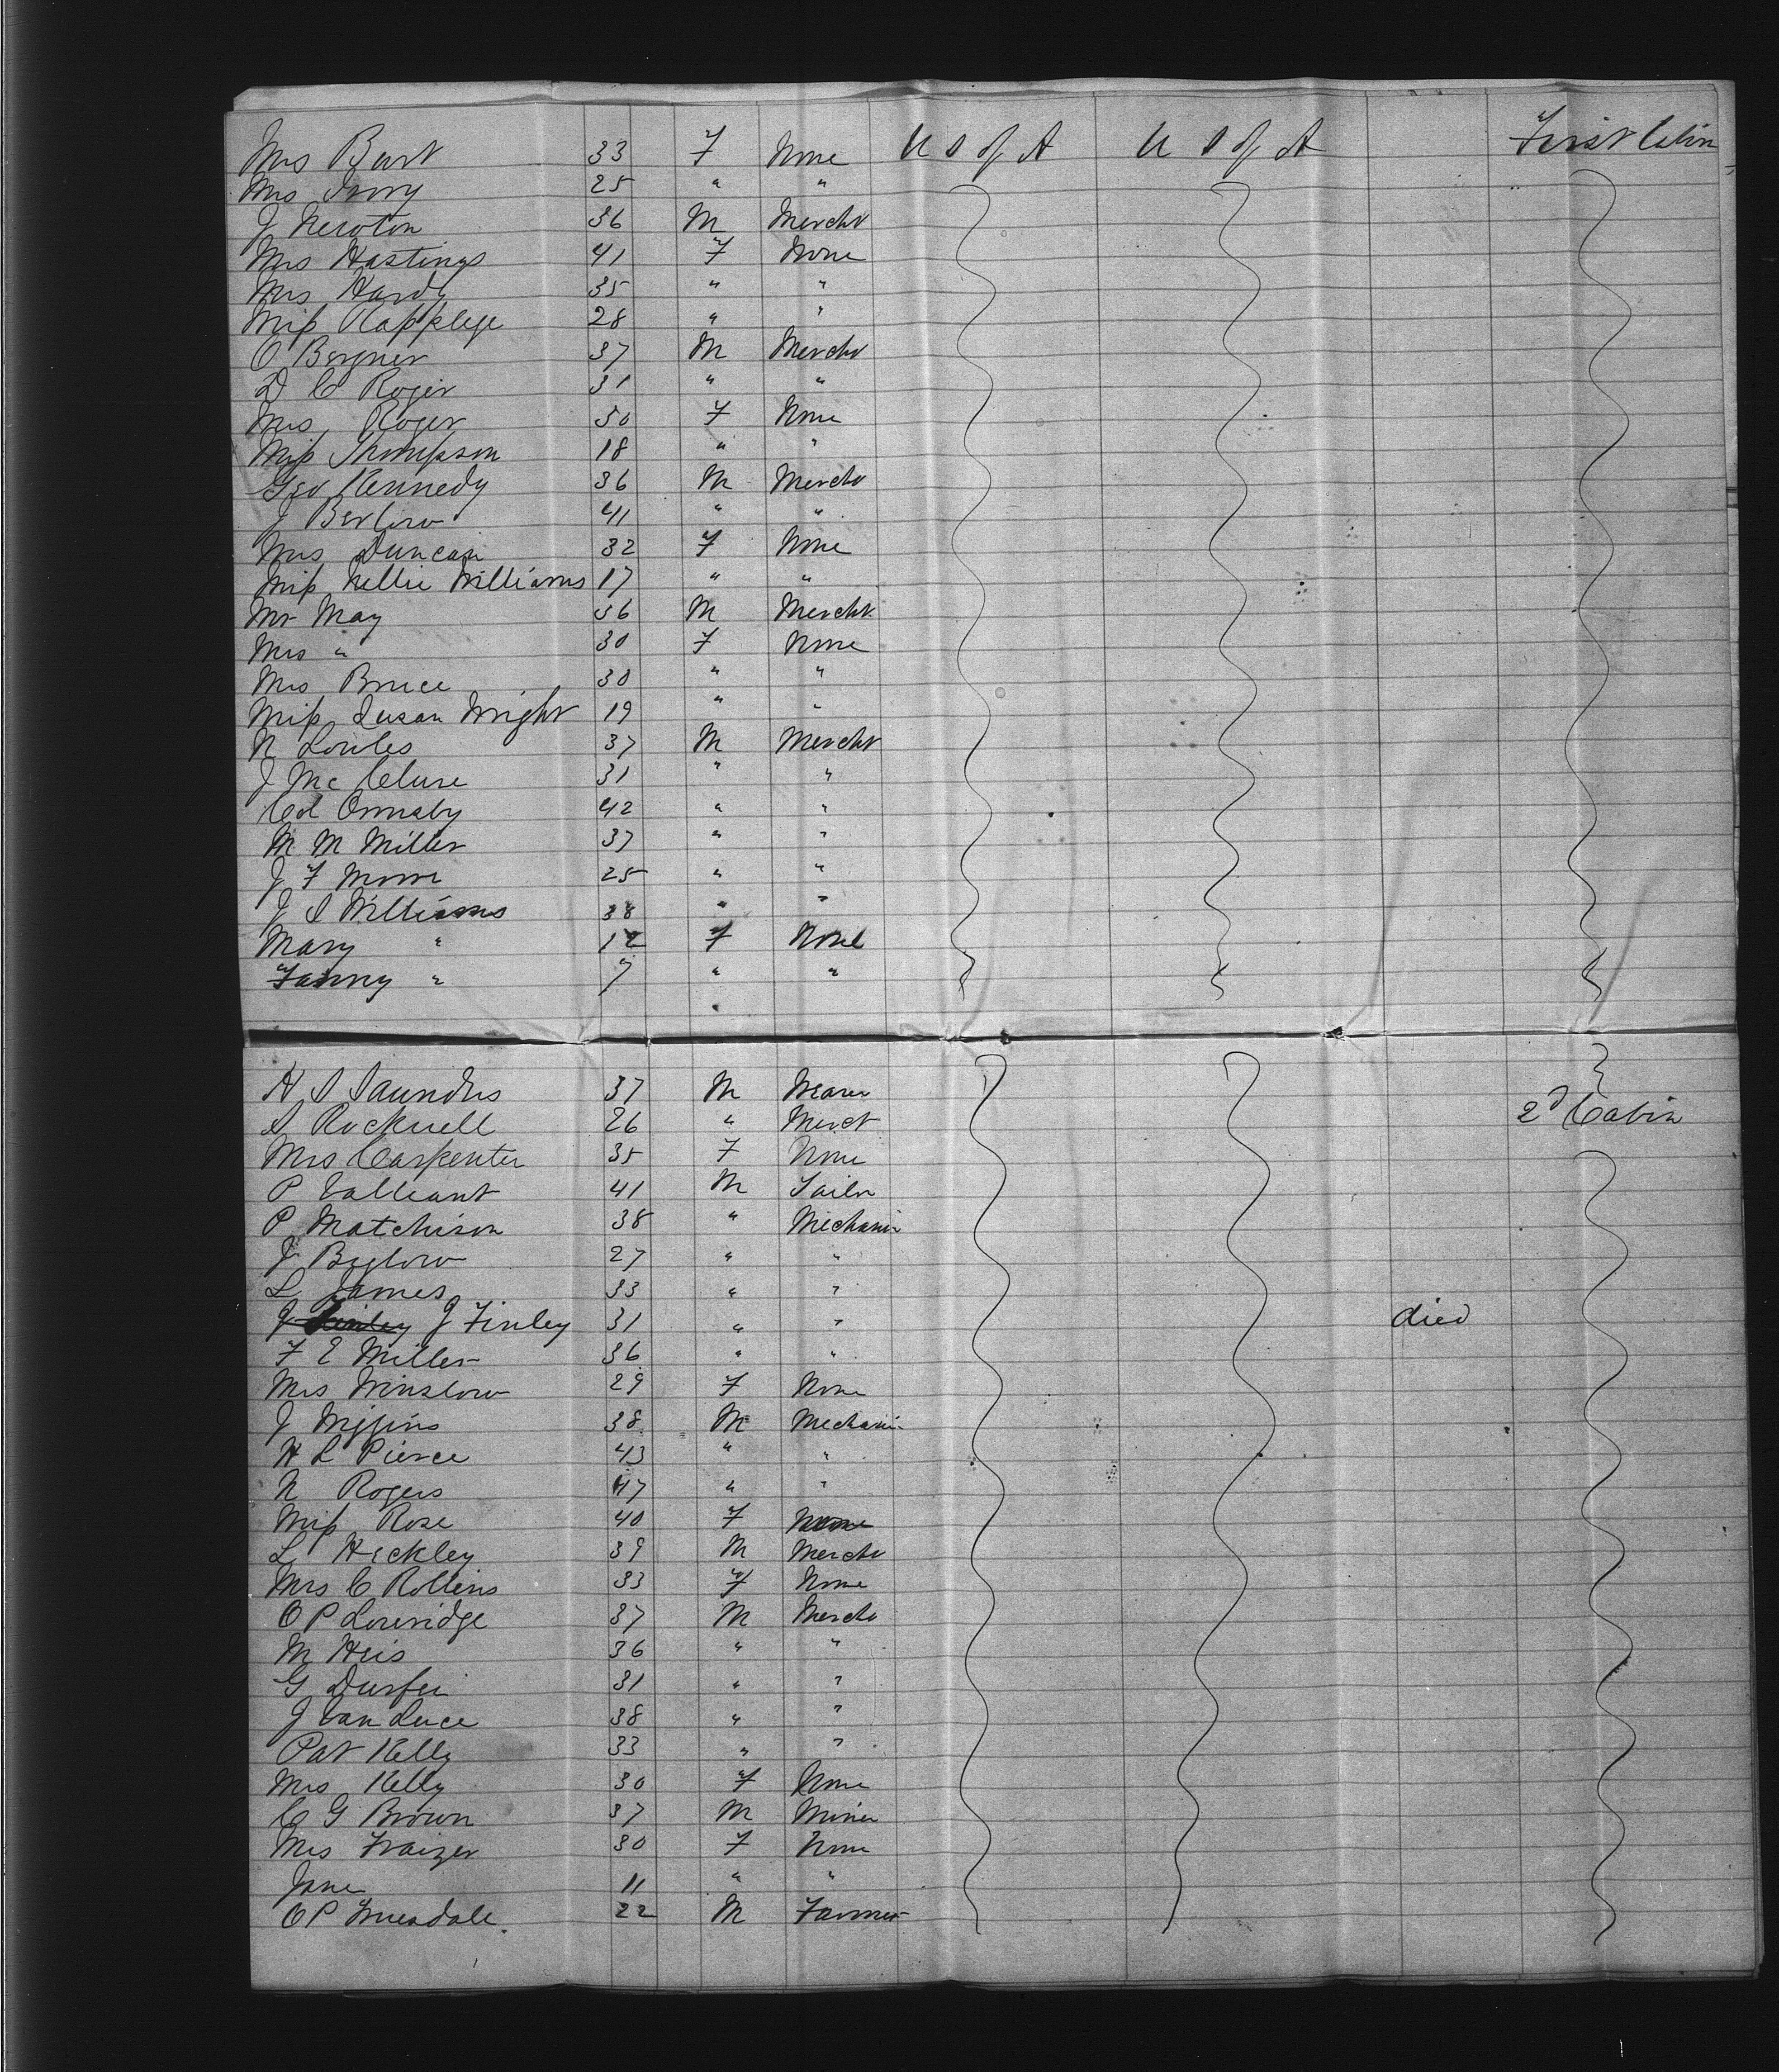 Mrs Burt 33 F None U S of A U S of A First Cabin
Mrs Ivory 25 " "
J Newton 36 M Mercht
Mrs Hastings 41 F None
Mrs Hardy 35 " "
Miss Rapplege 28 " "
O Bergner 37 M Mercht
D C Roger 31 " "
Mrs Roger 30 F None
Miss Thompson 18 " "
Geo Kennedy 36 M Mercht
J Berlow 41 " "
Mrs Duncan 32 F None
Miss Nellie Williams 17 " "
Mr May 36 M Mercht
Mrs " 30 F None
Mrs Bruce 30 " "
Miss Susan Wright 19 " "
N Lowles 37 M Mercht
J Mc Clure 31 " "
Col Ormsby 42 " "
M M Miller 37 " "
J F 25 " "
J S Williams 38 " "
Mary " 12 F None
Fanny " 7 " "
H S Saunders 37 M
S Rockwell 26 " Merct 2d Cabin
Mrs Carpenter 35 F None
P Valleant 41 M Sailor
P Matchison 38 " Mechanic
J Biglow 27 " "
L James 33 " "
J Finley J Finley 31 " " died
F E Miller 36 " "
Mrs Winslow 29 F None
J Wiggins 38 M Mechanic
H L Pierce 43 " "
N Rogers 47 " "
Miss Rose 40 F None
L Heckley 39 M Mercht
Mrs C Rollins 33 F None
O P Loveridge 37 M Mercht
M Heis 36 " "
G Durfee 31 " "
J Van Luce 38 " "
Pat Kelly 33 " "
Mrs Kelly 30 F None
C G Brown 37 M Miner
Mrs Fraizer 30 F None
Jane 11 " "
O P 22 M Farmer